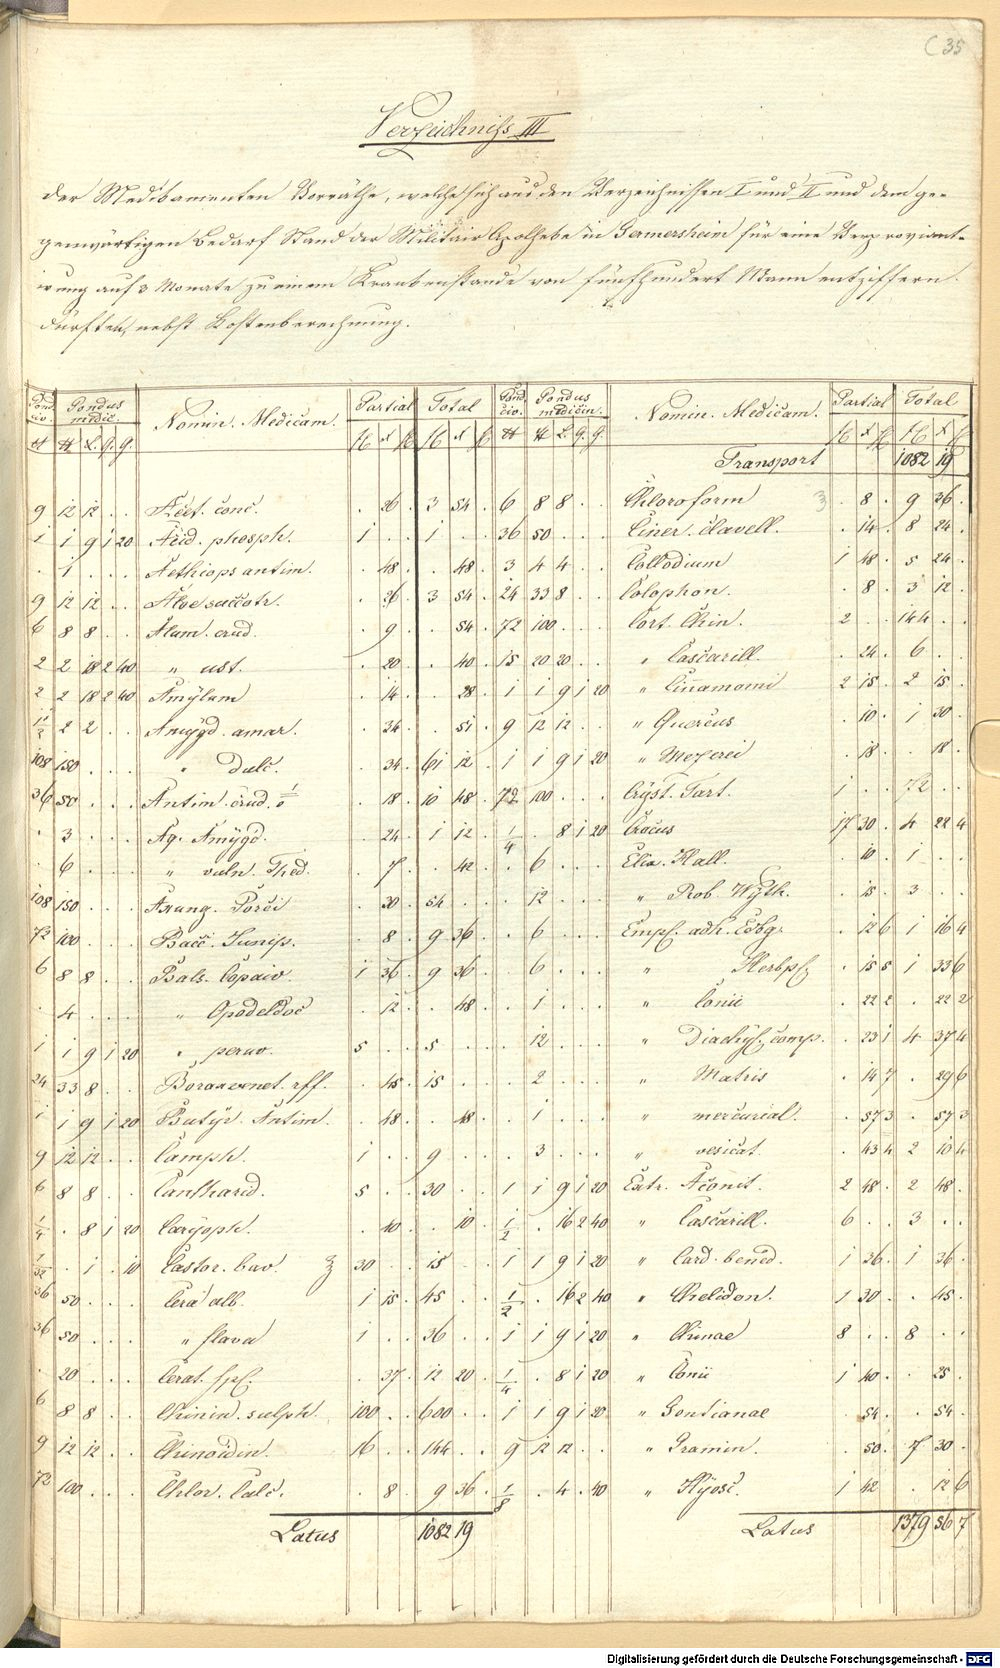 C 35
Verzeichniß III
der Medikamenten Vorräthe, welche sich aus den Verzeichnissen I und II und dem ge-
genwärtigen Bedarf Stand der Militair Apotheke in Germersheim für eine Verproviant-
irung auf 3 Monate zu einem Krankenstande von fünfhundert Mann entziffern
dürften, nebst Kostenberechnung.
Pond. civ. Pondus medic. Nomin. Medicam. Partial Total
9 12 12 . . Acet. conc. . 26 . 3 54 .
1 1 9 1 20 Acid. phosph. 1 . . 1 . .
. 1 . . . Aethiops antim. . 48 . . 48 .
9 12 12 . . Aloe succotr. . 26 . 3 54 .
6 8 8 . . Alum. crud. . 9 . . 54 .
2 2 18 2 40 " ust. . 20 . . 40 .
2 2 18 2 40 Amylum . 14 . . 28 .
1½ 2 2 . . Amygd. amar. . 34 . . 51 .
108 150 . . . " dulc. . 34 . 61 12 .
36 50 . . . Antim. crud. . 18 . 10 48 .
. 3 . . . Aq. Amygd. . 24 . 1 12 .
. 6 . . . " vuln. Thed. . 7 . . 42 .
108 150 . . . Axung. Porci . 30 . 54 . .
72 100 . . . Bacc. Junip. . 8 . 9 36 .
6 8 8 . . Bals. Copaiv. 1 36 . 9 36 .
. 4 . . . " Opodeldoc . 12 . . 48 .
1 1 9 1 20 " peruv. 5 . . 5 . .
24 33 8 . . Borax venet. rff. . 45 . 15 . .
1 1 9 1 20 Butyr. Antim. . 48 . . 48 .
9 12 12 . . Camph. 1 . . 9 . .
6 8 8 . . Cantharid. 5 . . 30 . .
¼ . 8 1 20 Caryoph. . 40 . . 10 .
1/32 . 1 . 10 Castor. bav. ℥ 30 . . 15 . .
36 50 . . . Cera alb. 1 15 . 45 . .
36 50 . . . " flava 1 . . 36 . .
. 20 . . . Cerat. spl. . 37 . 12 20 .
6 8 8 . . Chinin. sulph. 100 . . 600 . .
9 12 12 . . Chinoidin. 16 . . 144 . .
72 100 . . . Chlor. Calc. . 8 . 9 36 .
Latus 1082 19
Pond. civ. Pondus medicin. Nomin. Medicam. Partial Total
Transport 1082 19
6 8 8 . . Chloroform 3 . 8 . 9 36 .
36 50 . . . Ciner. clavell. . 14 . 8 24 .
3 4 4 . . Collodium 1 48 . 5 24 .
24 33 8 . . Colophon. . 8 . 3 12 .
72 100 . . . Cort. Chin. 2 . . 144 . .
15 20 20 . . " Cascarill. . 24 . 6 . .
1 1 9 1 20 " Cinnamomi 2 15 . 2 15 .
9 12 12 . . " Quercus . 10 . 1 30 .
1 1 9 1 20 " Mezerei . 18 . . 18 .
72 100 . . . Cryst. Tart. 1 . . 72 . .
¼ . 8 1 20 Crocus 17 30 . 4 22 4
. 6 . . . Elix. Hall. . 10 . 1 . .
. 12 . . . " Rob. Wytk. . 15 . 3 . .
. 6 . . . Empl. adh. Edbg. . 12 6 1 16 4
. 6 . . . " Herbpl. . 15 5 1 33 6
. 1 . . . " Conii . 22 2 . 22 2
. 12 . . . " Diachyl. comp. . 23 1 4 37 4
. 2 . . . " Matris . 14 7 . 29 6
. 1 . . . " mercurial. . 57 3 . 57 3
. 3 . . . " vesicat. . 43 4 2 10 4
1 1 9 1 20 Extr. Aconit. 2 48 . 2 48 .
½ . 16 2 40 " Cascarill. 6 . . 3 . .
1 1 9 1 20 " Card. bened. 1 36 . 1 36 .
½ . 16 2 40 " Chelidon. 1 30 . . 45 .
1 1 9 1 20 " Chinae 8 . . 8 . .
¼ . 8 1 20 " Conii 1 40 . . 25 .
1 1 9 1 20 " Gentianae . 54 . . 54 .
9 12 12 . . " Gramin. . 50 . 7 30 .
⅛ . 4 . 40 " Hyosc. 1 42 . . 12 6
Latus 1379 56 7
Digitalisierung gefördert durch die Deutsche Forschungsgemeinschaft - DFG